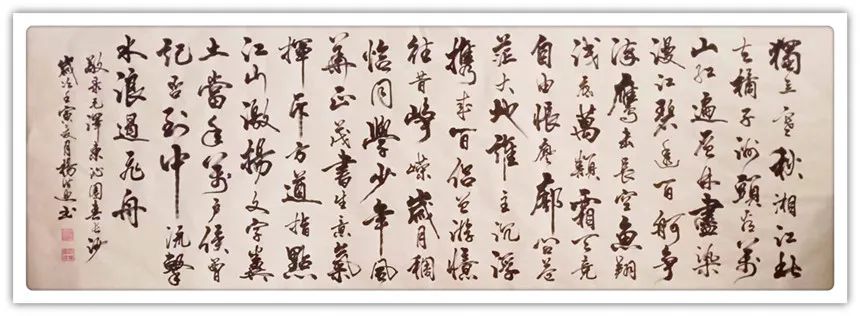 獨立寒秋湘江北
去橘子洲頭看萬
山紅遍層林盡染
漫江碧透百舸爭
流鷹击長空魚翔
浅底萬類霜天竞
自由悵寥廓问苍
茫大地誰主沉浮
携来百侣曾游憶
往昔崢嶸歲月稠
恰同學少年風
華正茂書生意氣
揮斥方遒指點
江山激揚文字糞
土當年萬户侯曾
記否到中流擊
水浪遏飛舟
敬录毛澤東沁園春長沙
歲次壬寅夏月楊